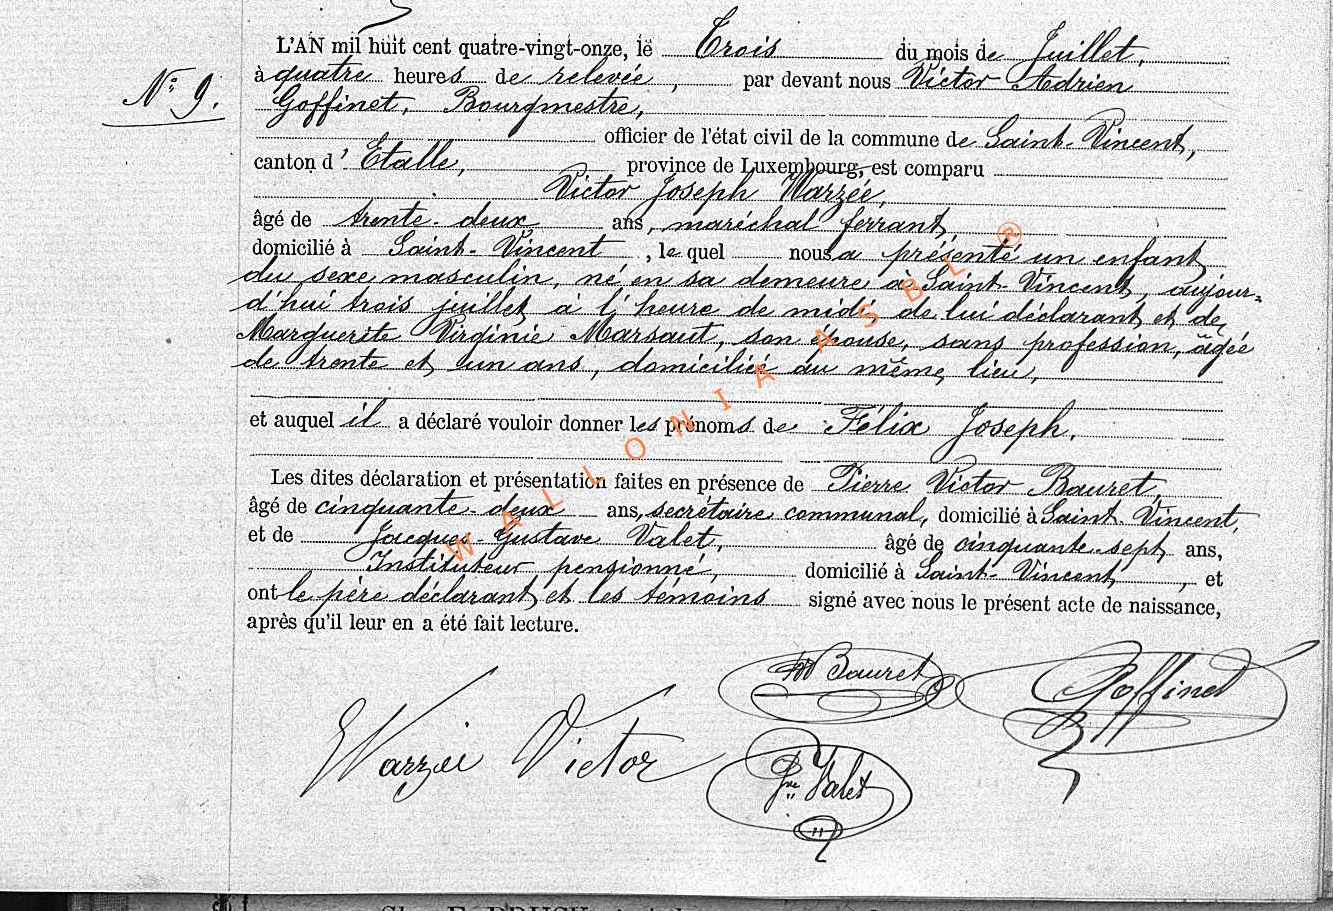 L'AN mil huit cent quatre-vingt-onze, le Trois du mois de Juillet,
à quatre heures de relevée, par devant nous Victor Adrien
N° 9. Goffinet, Bourgmestre,
officier de l'état civil de la commune de Saint-Vincent,
canton d'Etalle, province de Luxembourg, est comparu
Victor Joseph Warzée,
âgé de trente-deux ans, maréchal ferrant,
domicilié à Saint-Vincent, lequel nous a présenté un enfant
du sexe masculin, né en sa demeure à Saint-Vincent, aujour=
d'hui trois juillet à l'heure de midi, de lui déclarant et de
Marguerite Virginie Marsaut, son épouse, sans profession, âgée
de trente et un ans, domiciliée au même lieu,
et auquel il a déclaré vouloir donner les prénoms de Félix Joseph.
Les dites déclaration et présentation faites en présence de Pierre Victor Bauret,
âgé de cinquante-deux ans, secrétaire communal, domicilié à Saint-Vincent,
et de Jacques-Gustave Valet, âgé de cinquante-sept ans,
Instituteur pensionné, domicilié à Saint-Vincent, et
ont le père déclarant et les témoins signé avec nous le présent acte de naissance,
après qu'il leur en a été fait lecture.
WALLONIA ASBL ®
Bauret Goffinet
Warzée Victor
Valet